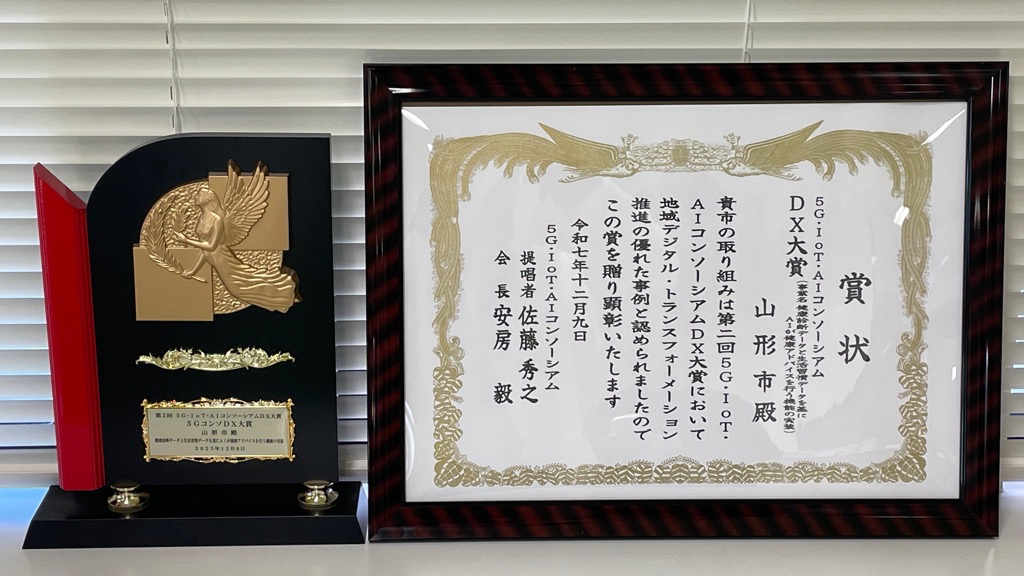 第2回 5G・IoT・AIコンソーシアムDX大賞
5GコンソDX大賞
山形市殿
健康診断データと生活習慣データを基にAIが健康アドバイスを行う機能の実装
2025年12月9日
賞状
5G・IoT・AIコンソーシアム
DX大賞(事業名 健康診断データと生活習慣データを基に
AIが健康アドバイスを行う機能の実装)
山形市殿
貴市の取り組みは第二回5G・IoT・
AIコンソーシアムDX大賞において
地域デジタル・トランスフォーメーション
推進の優れた事例と認められましたので
この賞を贈り顕彰いたします
令和七年十二月九日
5G・IoT・AIコンソーシアム
提唱者 佐藤秀之
会長 安房毅